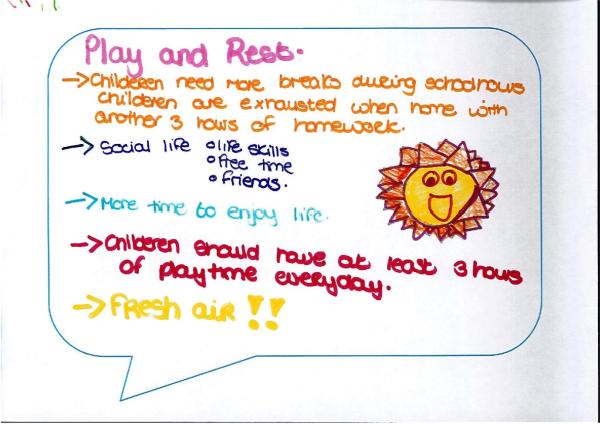 Play and Rest.
→Childeren need more breaks during schoolhours
children are exhausted when home with
another 3 hours of homework.
→Social life •life skills
•free time
•friends.
→More time to enjoy life.
→Childeren should have at least 3 hours
of playtime everyday.
→Fresh air !!